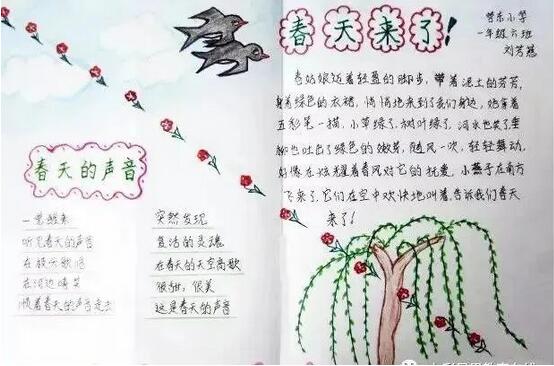 春天来了!
管东小学
一年级六班
春姑娘迈着轻盈的脚步,带着泥土的芳芳,
身着绿色的衣裙,悄悄地来到了我们身边,她拿着
五彩笔一描,小草绿了,树叶绿了,河水也笑了垂
柳也吐出了绿色的嫩芽,随风一吹,轻轻舞动,
好像在炫耀着春风对它的抚爱,小燕子在南方
飞来了.它们在空中欢快地叫着,告诉我们春天
来了!
春天的声音
一觉醒来
听见春天的声音
在放沃歌唱
在河边嬉笑
顺着春天的声音走去
突然发现
复活的灵魂
在春天的天空高歌
很甜,很美
这是春天的声音